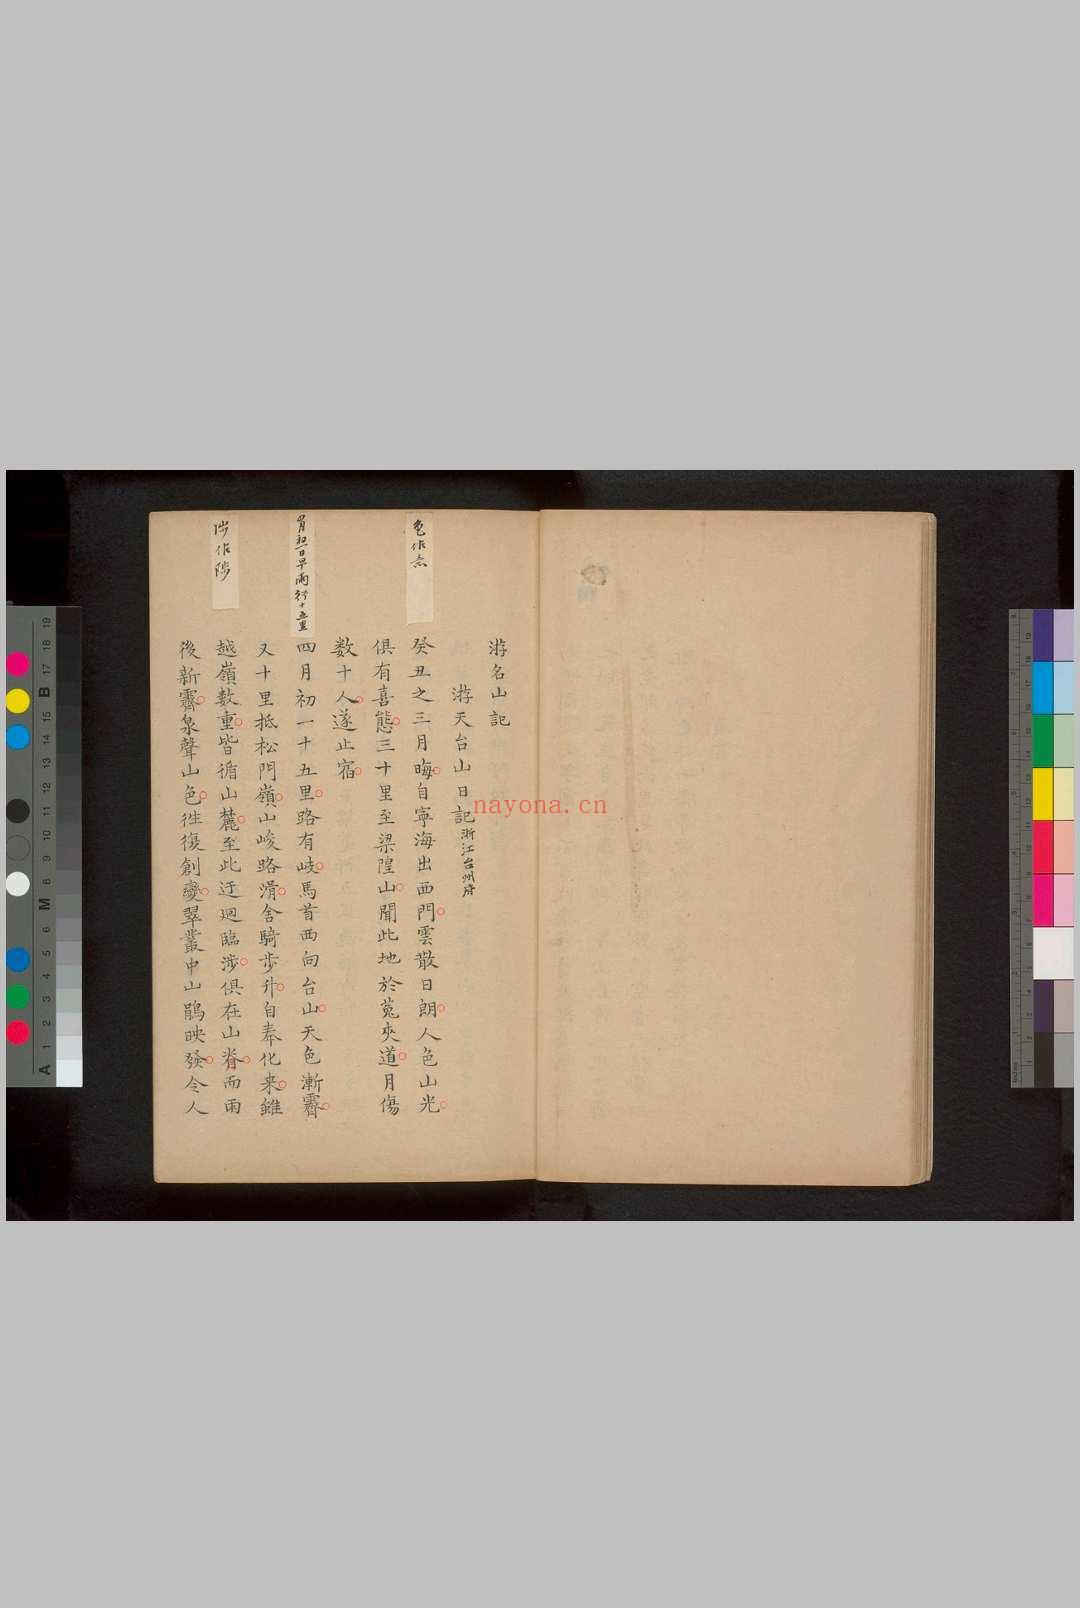 游名山記
游天台山日記浙江台州府
癸丑之三月晦自寧海出西門雲散日朗人色山光
俱有喜態三十里至梁隍山聞此地於菟夾道月傷
数十人遂止宿
四月初一十五里路有岐馬首西向台山天色漸霽
又十里抵松門嶺山峻路滑舍騎步升自奉化来雖
越嶺數重皆循山麓至此迂廻臨涉俱在山脊而雨
後新霽泉聲山色往復創變翠叢中山鵑映發令人
色作意
四月初一日早雨行十五里
涉作陟
nayona.cn